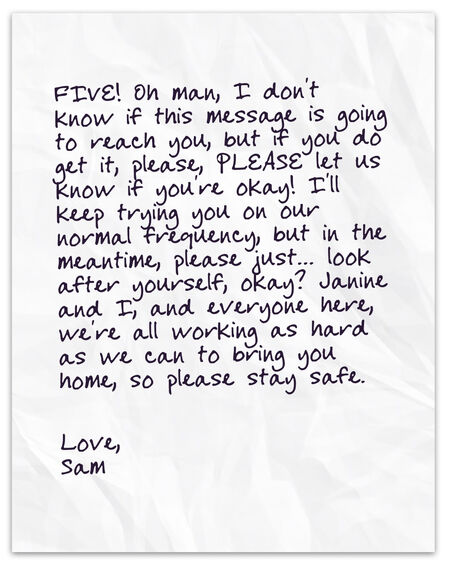 FIVE! Oh man, I don't
know if this message is going
to reach you, but if you do
get it, please, PLEASE let us
know if you're okay! I'll
keep trying you on our
normal frequency, but in the
meantime, please just... look
after yourself, okay? Janine
and I, and everyone here,
we're all working as hard
as we can to bring you
home, so please stay safe.
Love,
Sam